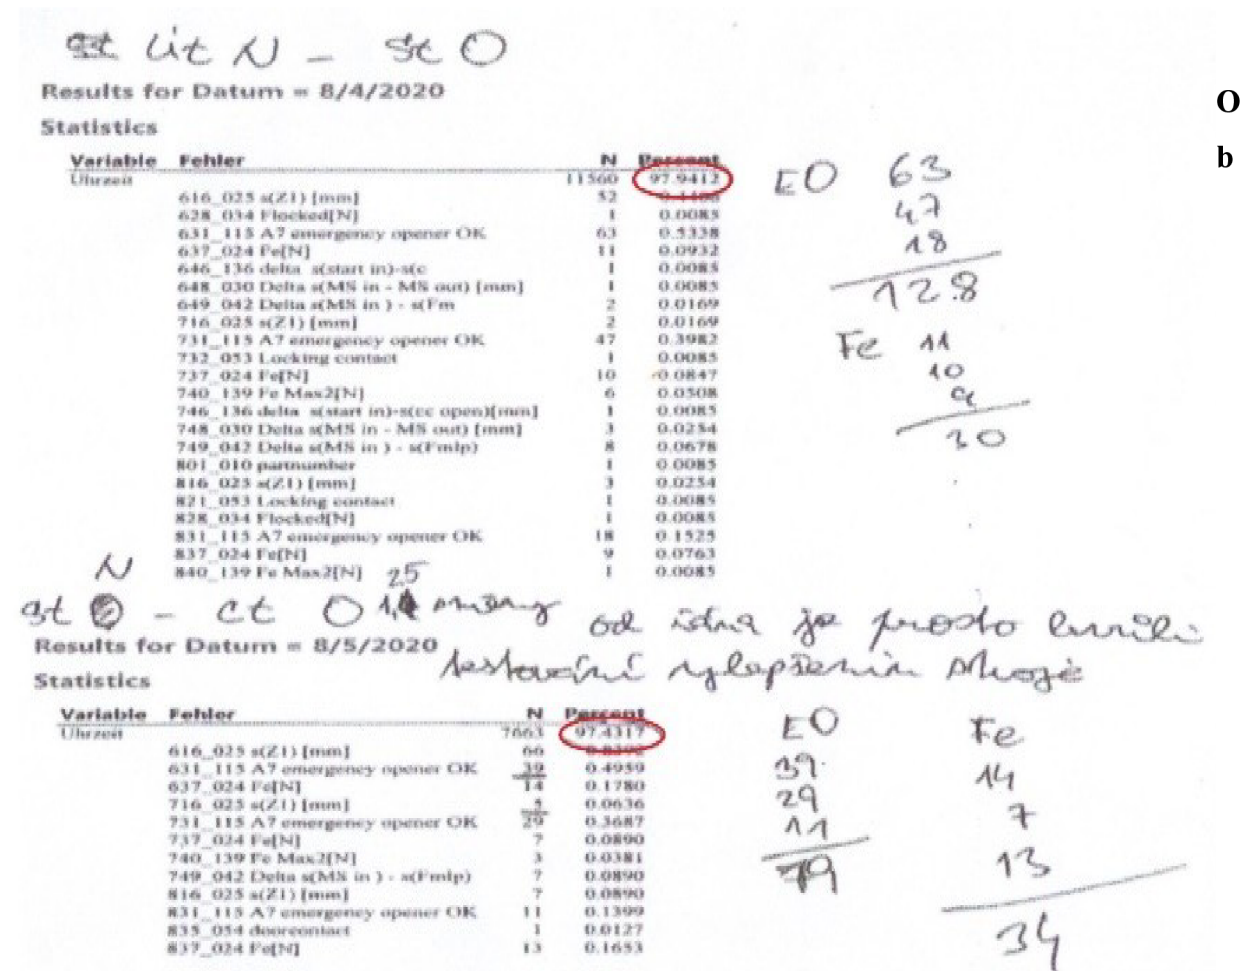 st lit N - st O
Results for Datum = 8/4/2020
O
Statistics
b
Variable Fehler N Percent
Uhrzeit 11560 97.9412
616_025 s(Z1) [mm] 52
628_034 Flocked[N] 1 0.0085
631_115 A7 emergency opener OK 63 0.5338
637_024 Fe[N] 11 0.0932
646_136 delta s(start in)-s(c 1 0.0085
648_030 Delta s(MS in - MS out) [mm] 1 0.0085
649_042 Delta s(MS in ) - s(Fm 2 0.0169
716_025 s(Z1) [mm] 2 0.0169
731_115 A7 emergency opener OK 47 0.3982
732_053 Locking contact 1 0.0085
737_024 Fe[N] 10 0.0847
740_139 Fe Max2[N] 6 0.0508
746_136 delta s(start in)-s(cc open)[mm] 1 0.0085
748_030 Delta s(MS in - MS out) [mm] 3 0.0254
749_042 Delta s(MS in ) - s(Fmlp) 8 0.0678
801_010 partnumber 1 0.0085
816_025 s(Z1) [mm] 3 0.0254
821_053 Locking contact 1 0.0085
828_034 Flocked[N] 1 0.0085
831_115 A7 emergency opener OK 18 0.1525
837_024 Fe[N] 9 0.0763
840_139 Fe Max2[N] 1 0.0085
EO 63
47
18
128
Fe 11
10
9
30
N
25
st - ct O
od je prosto
Results for Datum = 8/5/2020
testování
Statistics
Variable Fehler N Percent
Uhrzeit 7663 97.4317
616_025 s(Z1) [mm] 66
631_115 A7 emergency opener OK 39 0.4959
637_024 Fe[N] 14 0.1780
716_025 s(Z1) [mm] 5 0.0636
731_115 A7 emergency opener OK 29 0.3687
737_024 Fe[N] 7 0.0890
740_139 Fe Max2[N] 3 0.0381
749_042 Delta s(MS in ) - s(Fmlp) 7 0.0890
816_025 s(Z1) [mm] 7 0.0890
831_115 A7 emergency opener OK 11 0.1399
835_054 doorcontact 1 0.0127
837_024 Fe[N] 13 0.1653
EO
39
29
11
79
Fe
14
7
13
34